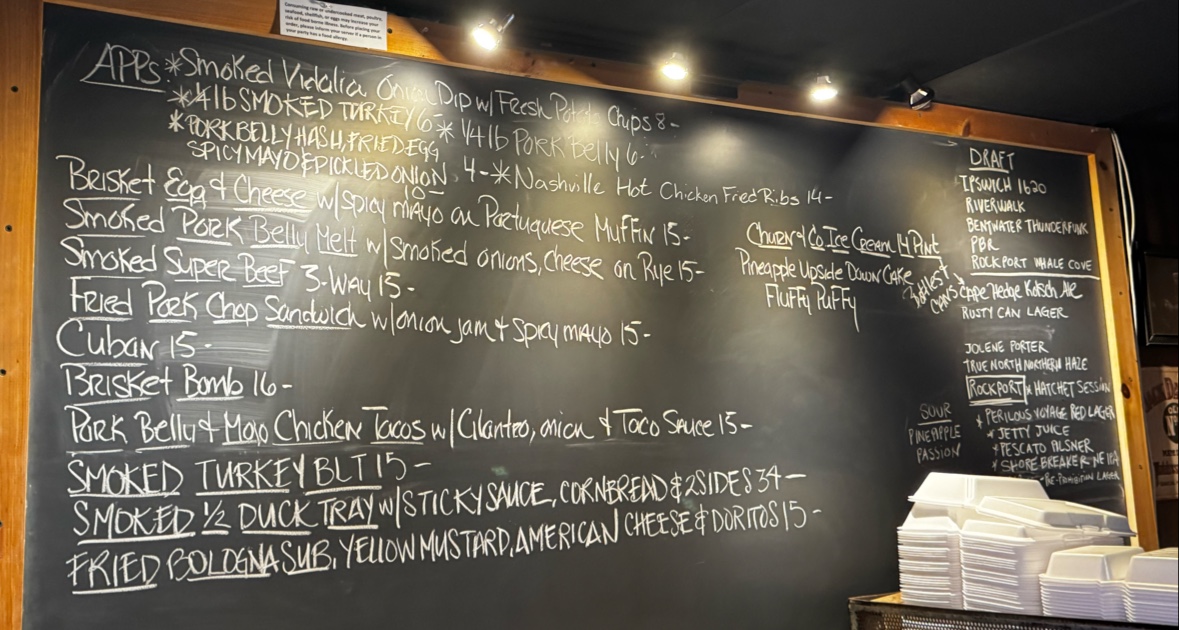 Consuming raw or undercooked meat, poultry,
seafood, shellfish, or eggs may increase your
risk of food borne illness. Before placing your
order, please inform your server if a person in
your party has a food allergy.
APPs *Smoked Vidalia Onion Dip w/ Fresh Potato Chips 8-
*¼ lb SMOKED TURKEY 6- * ¼ lb Pork Belly 6-
*PORK BELLY HASH, FRIED EGG,
SPICY MAYO & PICKLED ONION
10-
4- *Nashville Hot Chicken Fried Ribs 14-
Brisket Egg & Cheese w/ spicy mayo on Portuguese Muffin 15-
Smoked Pork Belly Melt w/ smoked onions, cheese on Rye 15-
Smoked Super Beef 3-Way 15-
Fried Pork Chop Sandwich w/ onion jam & spicy mayo 15-
Cuban 15-
Brisket Bomb 16-
Pork Belly & Mojo Chicken Tacos w/ Cilantro, onion & Taco Sauce 15-
SMOKED TURKEY BLT 15-
SMOKED ½ DUCK TRAY w/ STICKY SAUCE, CORNBREAD & 2 SIDES 34-
FRIED BOLOGNA SUB, YELLOW MUSTARD, AMERICAN CHEESE & DORITOS 15-
Churn & Co Ice Cream 14 Pint
Pineapple Upside Down Cake
Fluffy Puffy
DRAFT
IPSWICH 1620
RIVERWALK
BENTWATER THUNDERFUNK
PBR
ROCKPORT WHALE COVE
Bottles &
Cans
Cape Hedge Kolsch Ale
RUSTY CAN LAGER
JOLENE PORTER
TRUE NORTH NORTHERN HAZE
ROCKPORT * HATCHET SESSION
* PERILOUS VOYAGE RED LAGER
* JETTY JUICE
* PESCATO PILSNER
* SHORE BREAKER NE IPA
* PRE-PROHIBITION LAGER
SOUR
PINEAPPLE
PASSION